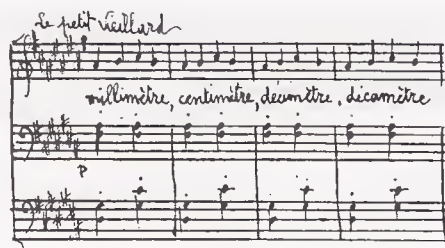 Le petit vieillard
millimètre, centimètre, décimètre, décamètre
p